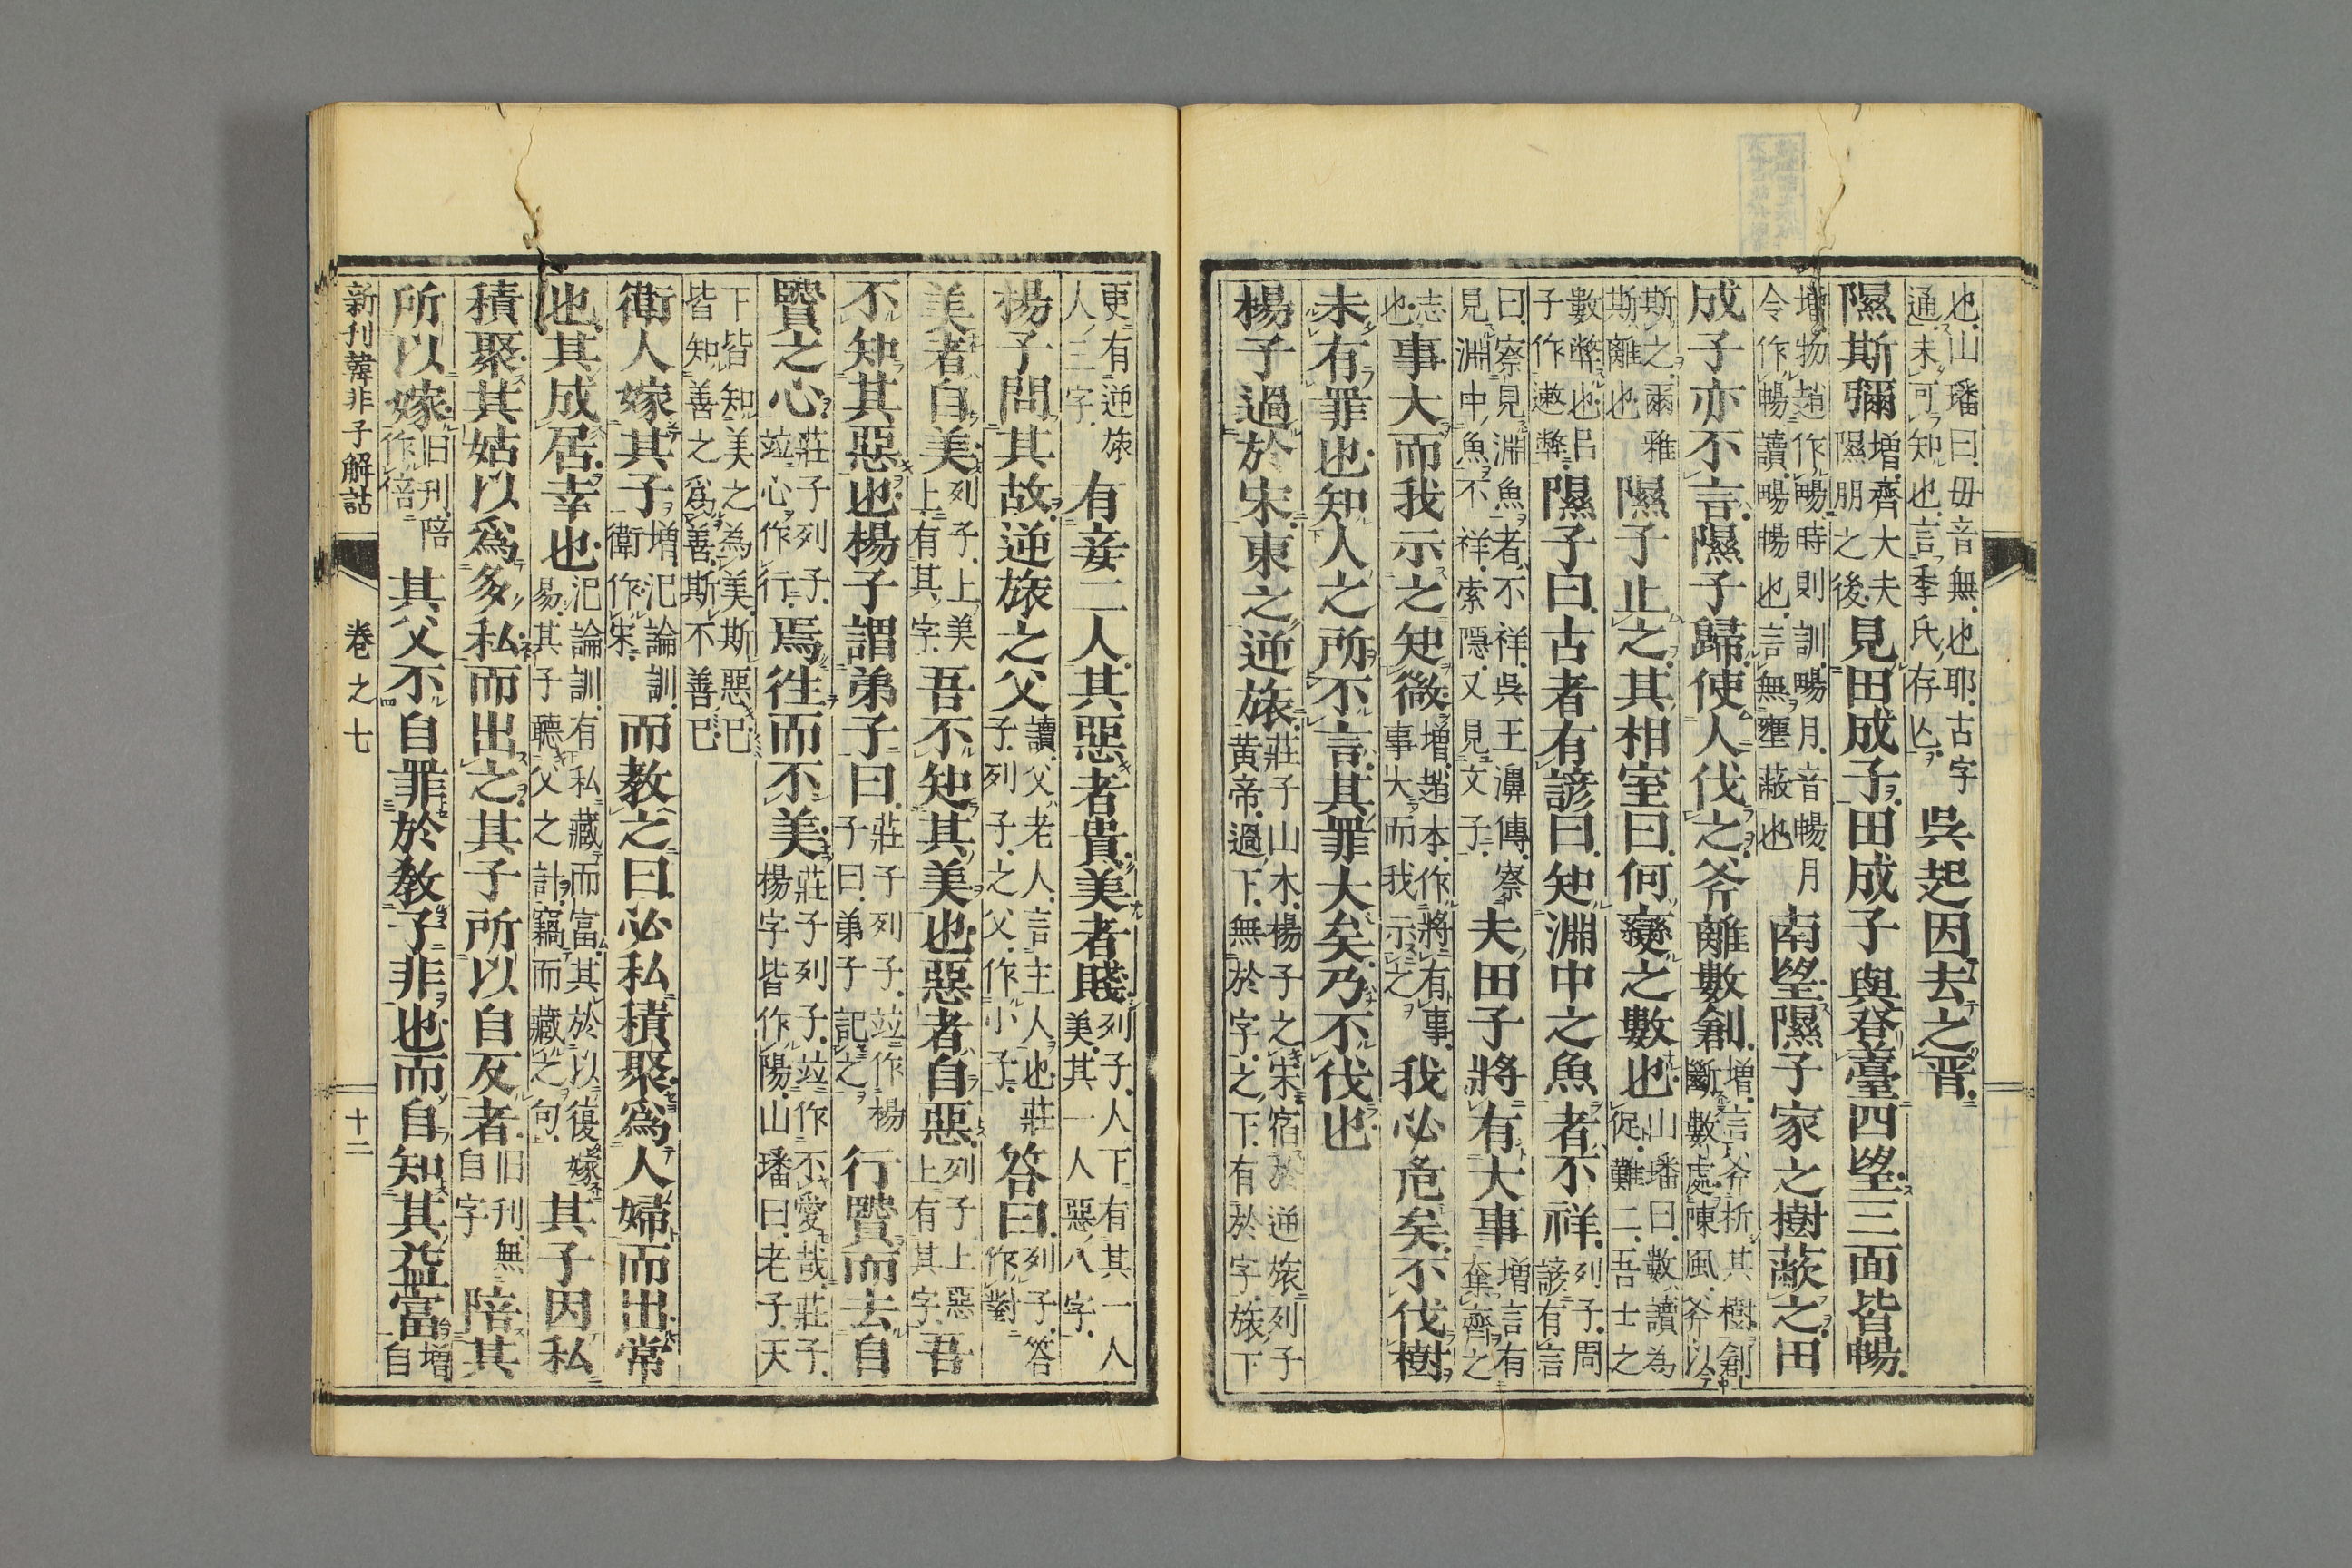 也山璠曰毋音無也耶古字
通未可知也言季氏存亾
吳起因去之晋
隰斯彌
增齊大夫
隰朋之後
見田成子田成子與登臺四望三面皆暢
增物趙作暢時則訓暢月音暢月
令作暢讀暢暢也言無壅蔽也
南望隰子家之樹蔽之田
成子亦不言隰子歸使人伐之斧離數創
增言斧析其樹創
斷數處陳風斧以
斯之爾雅
斯離也
隰子止之其相室曰何變之數也
山璠曰數讀為
促難二吾士之
數弊也呂
子作遬弊
隰子曰古者有諺曰知淵中之魚者不祥
列子周
諺有言
曰察見淵魚者不祥吳王濞傳察
見淵中魚不祥索隠又見文子
夫田子將有大事
增言有
奪齊之
志
也
事大而我示之知微
增趙本作將有事
事大而我示之
我必危矣不伐樹
未有罪也知人之所不言其罪大矣乃不伐也
楊子過於宋東之逆旅
莊子山木楊子之宋宿於逆旅列子
黄帝過下無於字之下有於字旅下
更有逆旅
人三字
有妾二人其惡者貴美者賤
列子人下有其一人
美其一人惡八字
楊子問其故逆旅之父
讀父老人言主人也莊
子列子之父作小子
答曰
列子答
作對
美者自美
列子上美
上有其字
吾不知其美也惡者自惡
列子上惡
上有其字
吾
不知其惡也楊子謂弟子曰
莊子列子竝作楊
子曰弟子記之
行賢而去自
賢之心
莊子列子
竝心作行
焉徃而不美
莊子列子竝作不愛哉莊子
楊字皆作陽山璠曰老子天
下皆知美之為美斯惡已
皆知善之爲善斯不善已
衛人嫁其子
增氾論訓
衛作宋
而教之曰必私積聚爲人婦而出常
也其成居幸也
氾論訓有私藏而富其於以復嫁
易其子聽父之計竊而藏之句
其子因私
積聚其姑以爲多私而出之其子所以自反者
旧刊無
自字
陪其
所以嫁
旧刊陪
作倍
其父不自罪於教子非也而自知其益富
增
自
新刊韓非子解詁
巻之七
十二